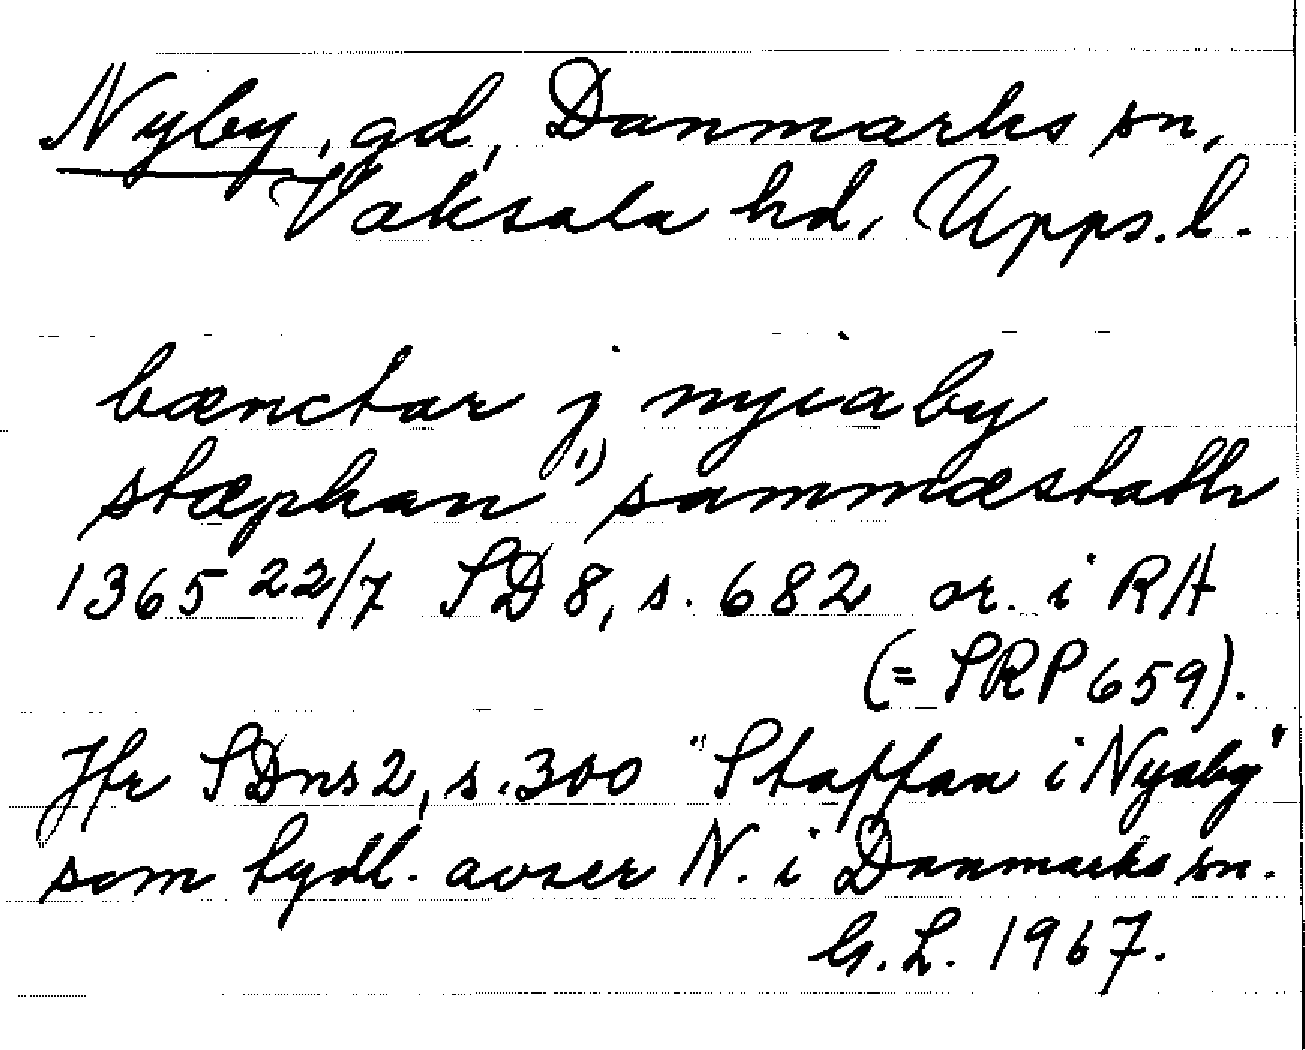 Nyby, gd, Danmarks sn,
Vaksala hd, Upps. l.
bænctar j nyiaby
stæphan 1) sammæstath
1365 22/7 SD 8, s. 682 or. i RA
(= SRP 659).
Jfr SDns 2, s. 300 "Staffan i Nyaby"
som tydl. avser N. i Danmarks sn.
G. L. 1967.